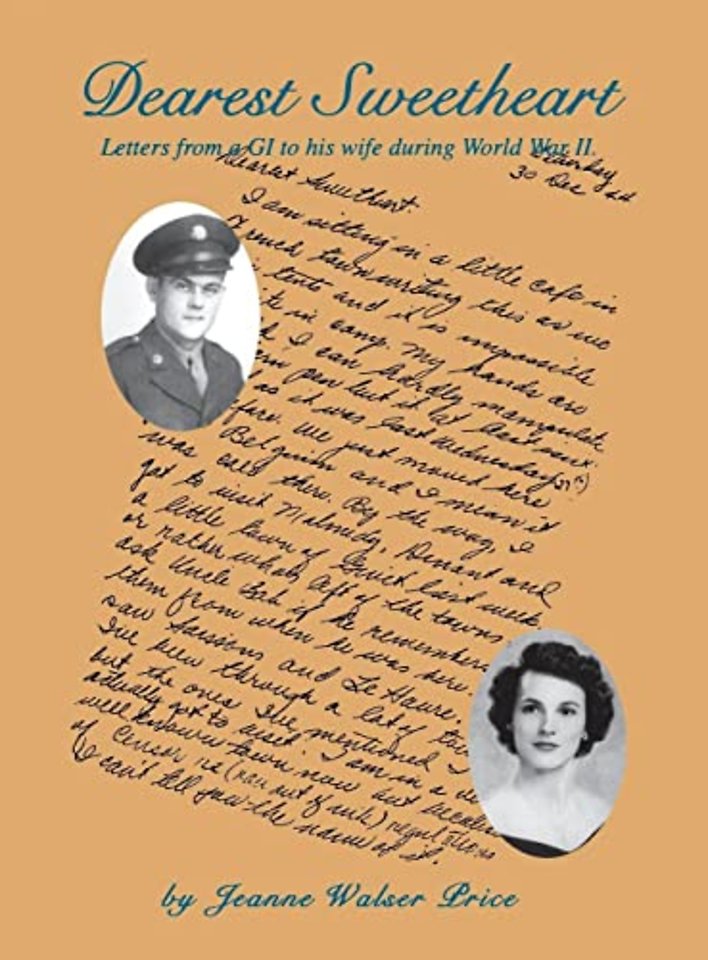 Dearest Sweetheart
Letters from a GI to his wife during World War II.
Saturday
30 Dec 44
Dearest Sweetheart:
I am sitting in a little cafe in
French town writing this as we
tents and it is impossible
in camp. My hands are
I can hardly manipulate
pen but it
as it was last Wednesday (27th)
fore. We just moved here
Belguim and I mean it
was cold there. By the way, I
got to visit Malmedy, Denant and
a little town of last week
or rather whats left of the towns
ask Uncle if he remembers
them from when he was here.
saw Soissons and Le Havre.
I've been through a lot of
but the ones I've mentioned I
actually got to visit. I am in a
well known town now but because
of Censor ice (ran out of ink) regulations
I can't tell you the name of it.
by Jeanne Walser Price